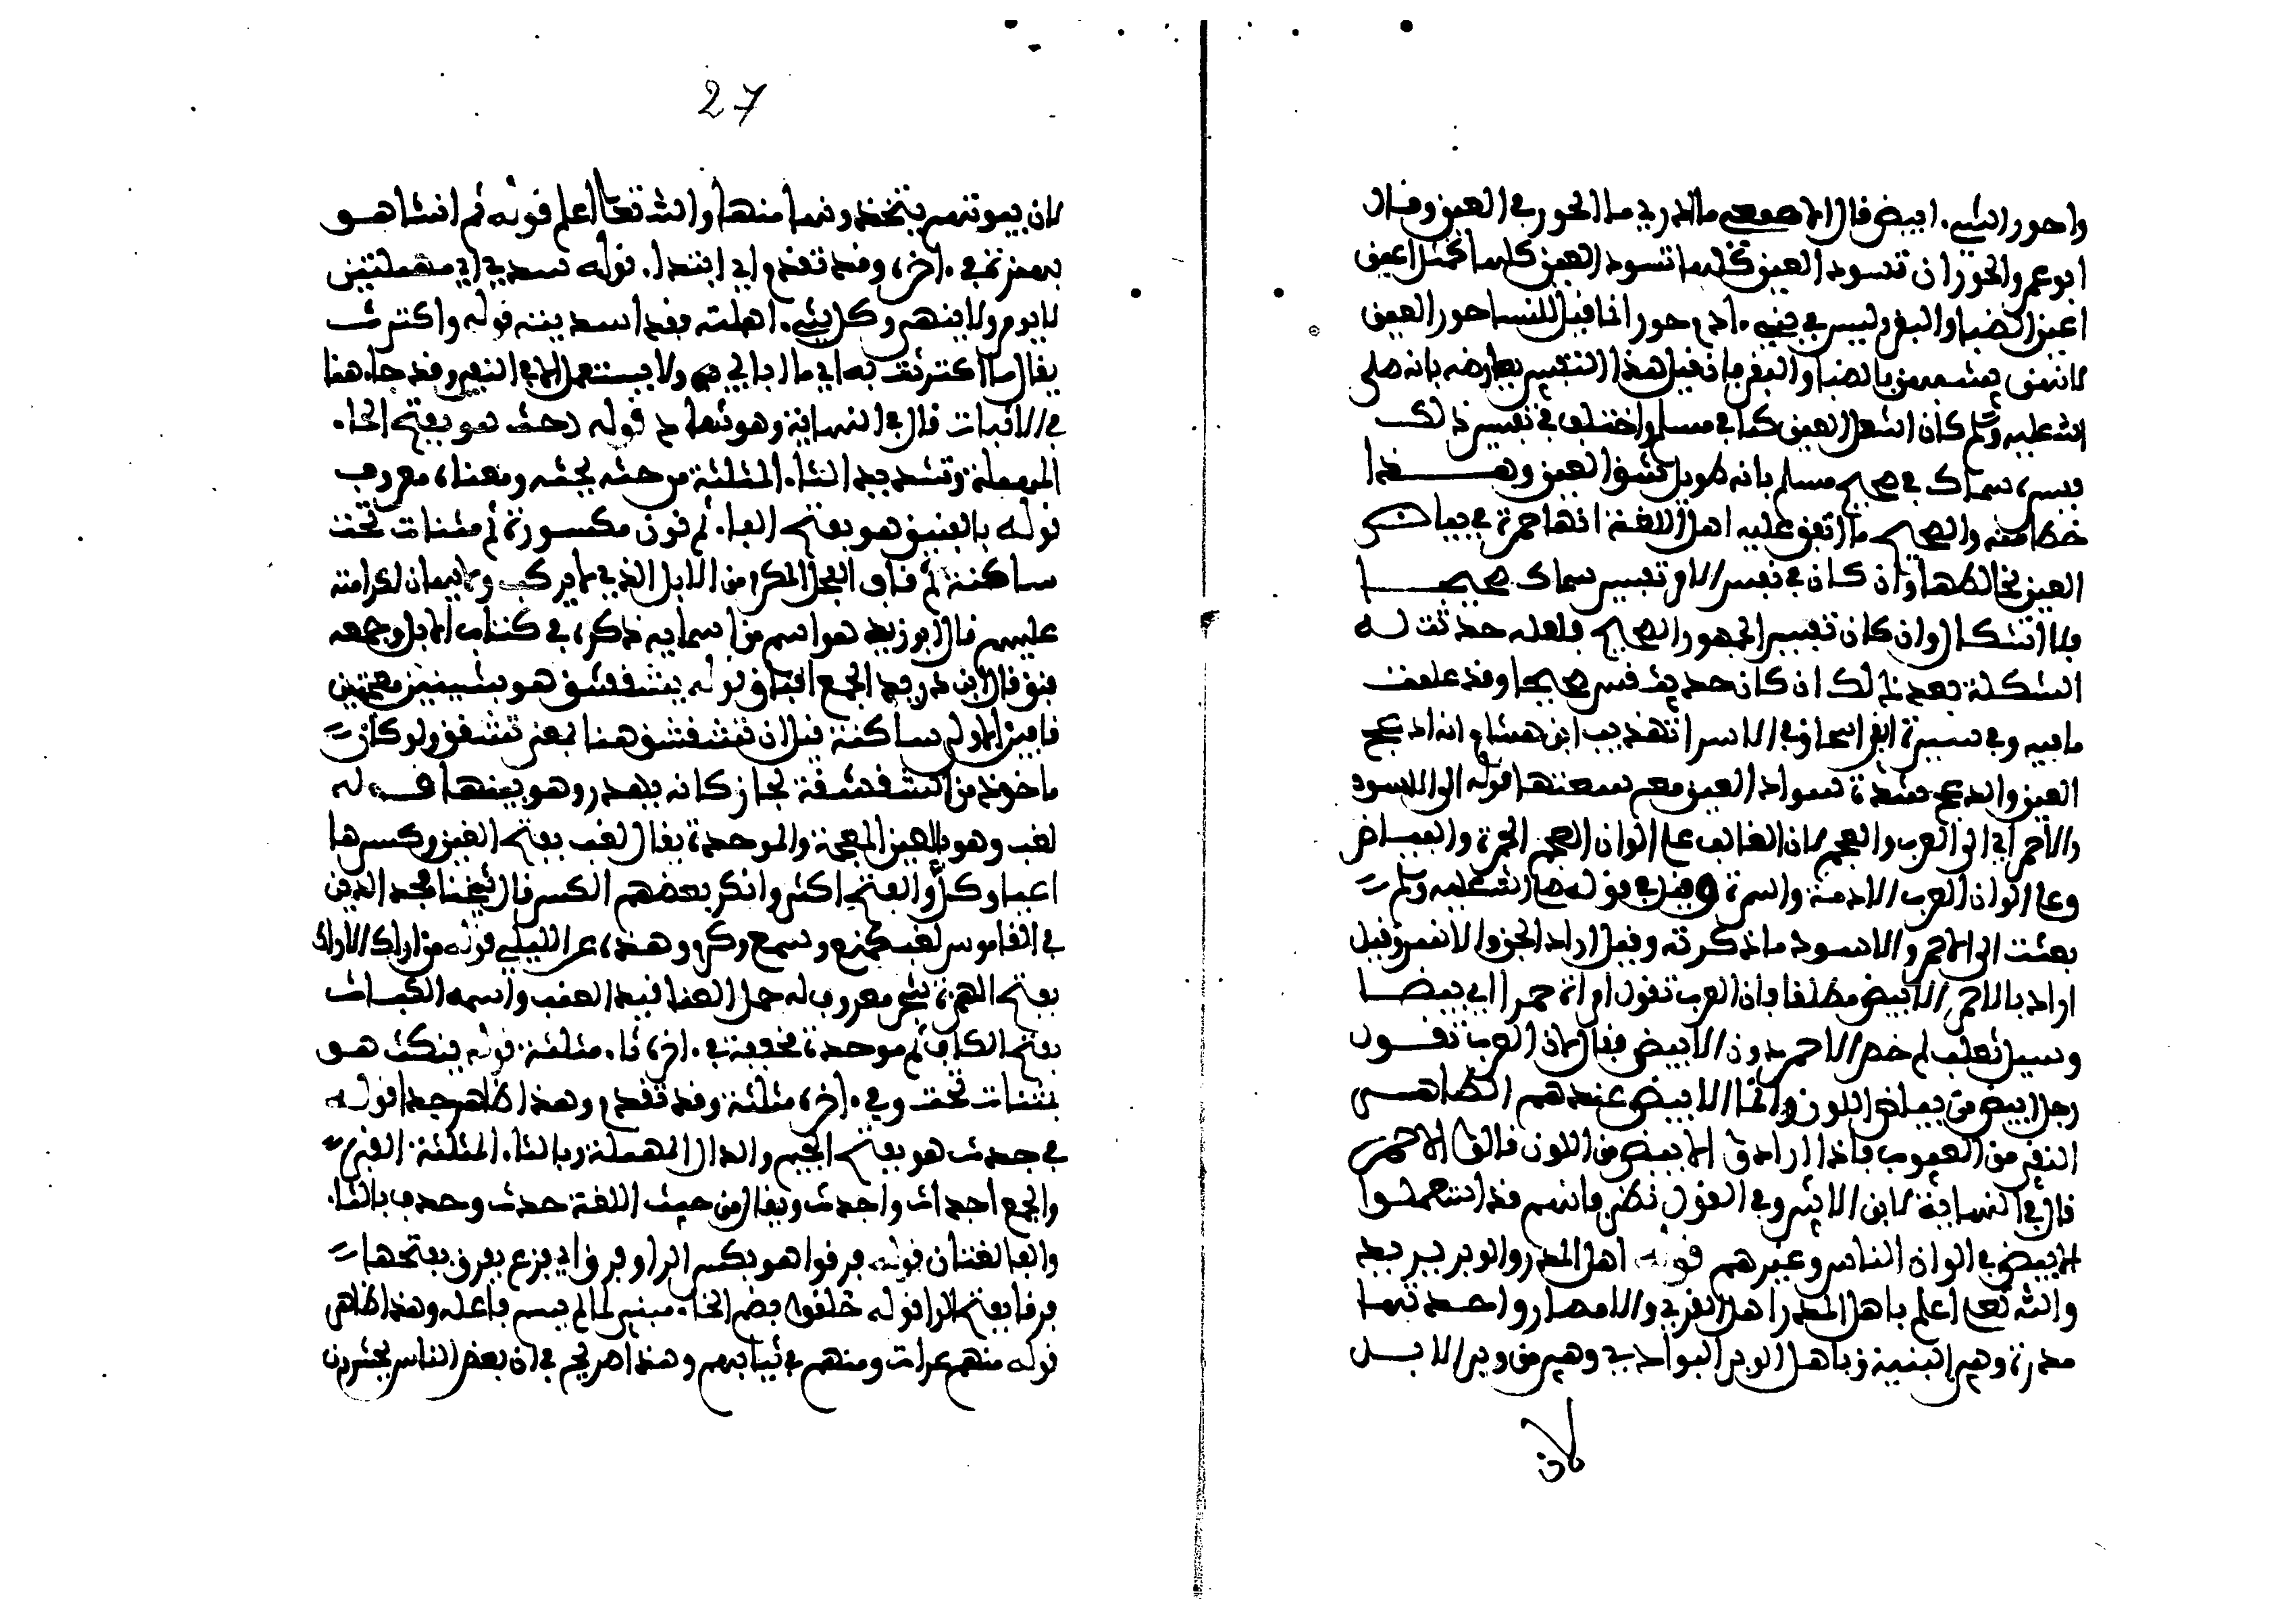 واحور الشيء ابيض قال الاصمعي ما ادري ما الحور في العين وقال
ابو عمرو الحور ان تسود العين كلها تسود العين كلها كمثل اعين
اعين الضبا والبقر وليس في بني ادم حور انما قيل للنسا حور العين
لانهن يشبهن بالضبا والبقر فان قيل هذا التفسير يعارضه بانه صلى
الله عليه وسلم كان اشكل العين كما في مسلم واختلف في تفسير ذلك
ففسره سماك في صحيح مسلم بانه طويل شق العين وهذا
خطا منه والصحيح ما اتفق عليه اهل اللغة انها حمرة في بياض
العين تخالطها وان كان في نفس الامر تفسير سماك صحيحا
فلا اشكال وان كان تفسير الجمهور الصحيح فلعله حدثت له
الشكلة بعد ذلك ان كان حديث قس صحيحا وقد علمت
ما فيه وفي سيرة ابن اسحاق في الاسرا تهذيب ابن هشام انه ادعج
العين والدعج شدة سواد العين مع سعتها قوله الى الاسود
والاحمر اي الى العرب والعجم لان الغالب على الوان العجم الحمرة والبياض
وعلى الوان العرب الادمة والسمرة وقيل في قوله صلى الله عليه وسلم
بعثت الى الاحمر والاسود ما ذكرته وقيل اراد الجن والانس وقيل
اراد بالاحمر الابيض مطلقا فان العرب تقول امراة حمرا اي بيضا
وسيل ثعلب لم خص الاحمر بدون الابيض فقال لان العرب تقول
رجل ابيض من بياض اللون وانما الابيض عندهم الطاهر
النقي من العيوب فاذا ارادوا الابيض من اللون قالوا الاحمر
قال في النهاية لابن الاثير وفي القول نظر فانهم قد استعملوا
الابيض في الوان الناس وغيرهم قوله اهل المدر والوبر يريد
والله تعالى اعلم باهل المدر اهل القرى والامصار واحدتها
مدرة وهي البنية وباهل الوبر البوادي وهي من وبر الابل
لان
27
لان بيوتهم يتخذونها منها والله تعالى اعلم قوله ثم انشا هو
بهمزة في اخره وقد تقدم اي ابتدا قوله سدى اي مهملين
لا يومر ولا ينهى وكل شيء اهملته فقد اسديته قوله واكترث
يقال ما اكترثت به اي ما ابالي به ولا يستعمل الا في النفي وقد جا هنا
في الاثبات قال في النهاية وهو شاذ قوله وحث هو بفتح الحا
المهملة وتشديد الثا المثلثة من حثه يحثه ومعناه معروف
قوله بالفنيق هو بفتح الفا ثم نون مكسورة ثم مثنات تحت
ساكنة ثم قاف الفحل المكرم من الابل الذي لا يركب ولا يهان لكرامته
عليهم قال ابو زيد هو اسم من اسمايه ذكره في كتاب الابل وجمعه
فنق قال ابن دريد الجمع افناق قوله يشقشق هو بشينين معجمتين
قافين الاولى ساكنة قيل ان تشقشق هنا بمعنى تشقق ولو كان
ماخوذ من الشقشقة لجاز كانه يهدر وهو بينها قوله
لغب وهو بالغين المعجمة والموحدة يقال لغب بفتح الغين وكسرها
اعيا وكل والفتح اكثر وانكر بعضهم الكسر قال شيخنا مجد الدين
في القاموس لغب كمنع وسمع وكرم وهذه عن اللبلي قوله من اراك الاراك
بفتح الهمزة شجر معروف له حمل العناقيد العنب واسمه الكباث
بفتح الكاف ثم موحدة مخففة في اخره ثا مثلثة قوله ينكث هو
بمثنات تحت وفي اخره مثلثة وقد تقدم وهذا ظاهر جدا قوله
في جدث هو بفتح الجيم والدال المهملة وبالثا المثلثة القبر
والجمع اجداث واجدث ويقال من حيث اللغة جدث وجدف بالثا
والفا لغتان قوله فرقوا هو بكسر الرا وفرق اي فزع يفرق بفتحها
فرقا بفتح الرا قوله خلقوا بضم الخا مبني لما لم يسم فاعله وهذا ظاهر
قوله منهم عرات ومنهم في ثيابهم وهذا صريح في ان بعض الناس يحشرون